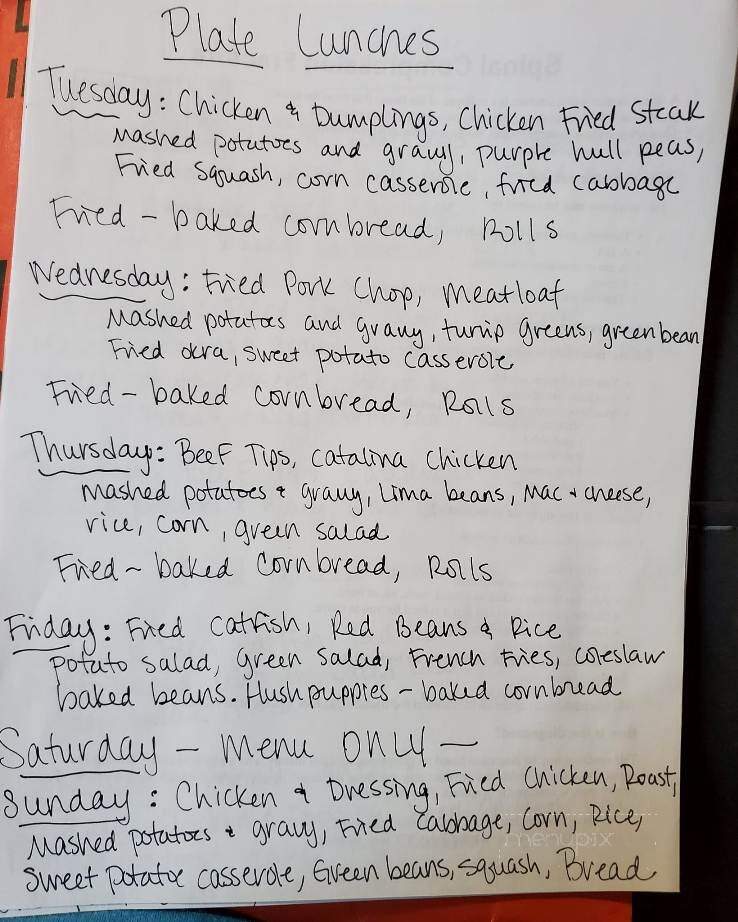 Plate Lunches
Tuesday: Chicken & Dumplings, Chicken Fried Steak
Mashed potatoes and gravy, purple hull peas,
Fried Squash, corn casserole, fried cabbage
Fried - baked cornbread, Rolls
Wednesday: Fried Pork Chop, Meatloaf
Mashed potatoes and gravy, turnip greens, green bean
Fried okra, sweet potato casserole
Fried - baked cornbread, Rolls
Thursday: Beef Tips, Catalina Chicken
Mashed potatoes & gravy, Lima beans, Mac & cheese,
rice, corn, green salad
Fried ~ baked Cornbread, Rolls
Friday: Fried Catfish, Red Beans & Rice
Potato salad, green salad, French Fries, coleslaw
baked beans. Hushpuppies - baked cornbread
Saturday - Menu ONLY -
Sunday: Chicken & Dressing, Fried Chicken, Roast,
Mashed potatoes & gravy, Fried Cabbage, Corn, Rice,
menupix
Sweet Potatoe casserole, Green beans, squash, Bread